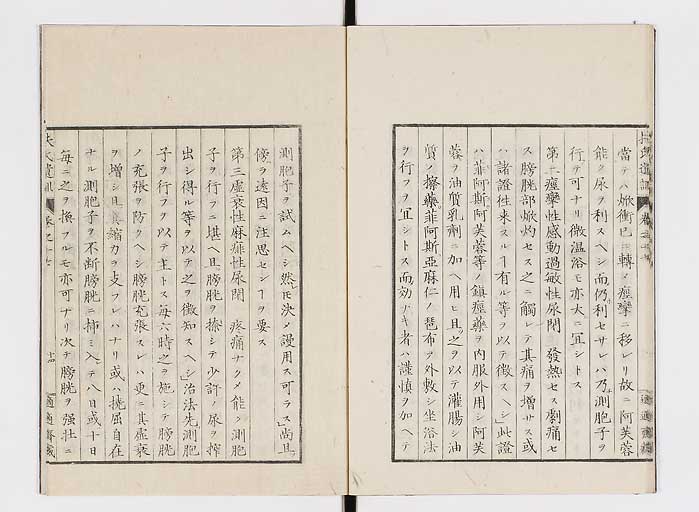 當テハ焮衝已ニ轉メ痙攣ニ移レリ故ニ阿芙蓉
能ク尿ヲ利スヘシ而仍利セサレハ乃測胞子ヲ
行テ可ナリ微温浴モ亦大ニ冝シトス
第二痙攣性感動過敏性尿閉 發熱セス劇痛セ
ス膀胱部焮灼セス之ニ觸レテ其痛ヲ増サス或
ハ諸證徃来スルヿ有ル等ヲ以テ徴スヘシ此證
ハ菲阿斯阿芙蓉等ノ鎮痙藥ヲ内服外用シ阿芙
蓉ヲ油質乳劑ニ加ヘ用ヒ且之ヲ以テ灌腸シ油
質ノ擦藥菲阿斯亞麻仁ノ琶布ヲ外敷シ坐浴法
ヲ行フヲ冝シトス而効ナキ者ハ謹慎ヲ加ヘテ
測胞子ヲ試ムヘシ然𪜈决メ謾用ス可ラス尚且
傍ラ遠因ニ注思センヿヲ要ス
第三虚衰性麻痺性尿閉 疼痛ナクメ能ク測胞
子ヲ行フニ堪ヘ且膀胱ヲ擦シテ少許ノ尿ヲ搾
出シ得ル等ヲ以テ之ヲ徴知スヘシ治法先測胞
子ヲ行フヲ以テ主トス毎六時之ヲ施シテ膀胱
ノ充張ヲ防クヘシ膀胱充張スレハ更ニ其虚衰
ヲ増シ且其縮力ヲ支フレハナリ或ハ撓屈自在
ナル測胞子ヲ不断膀胱ニ挿ミ入テ八日或十日
毎ニ之ヲ換フルモ亦可ナリ次テ膀胱ヲ强壮ニ
扶氏遺訓
十四
適適齋藏